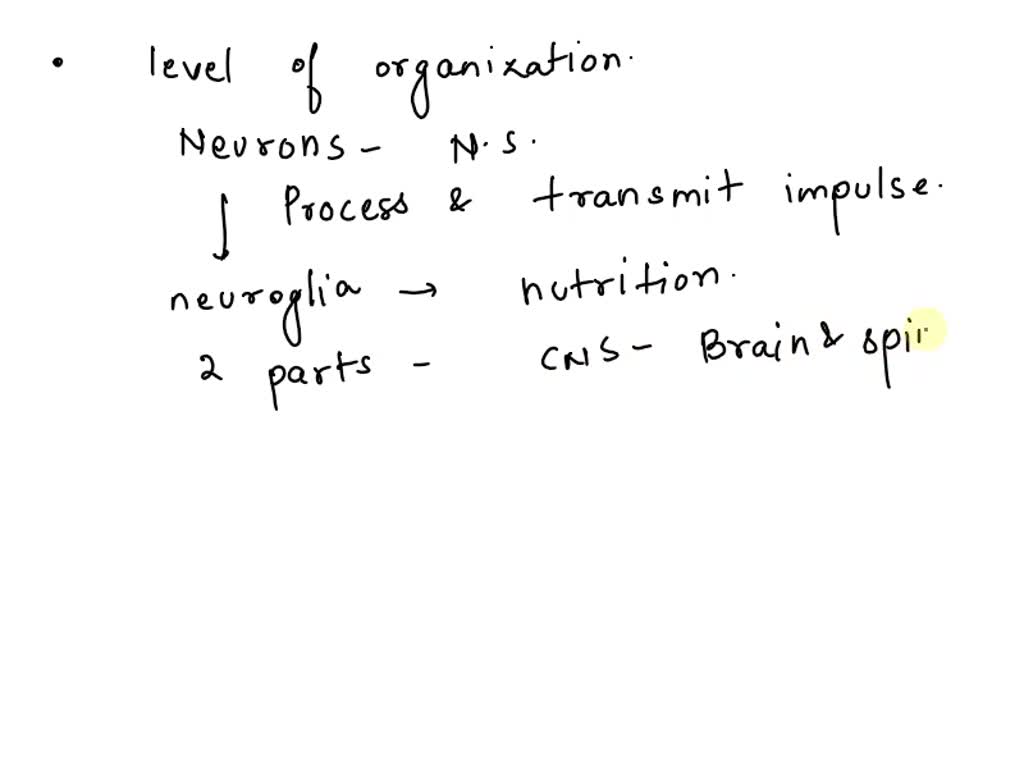 • level of organization.
Neurons - N.S.
↓ Process & transmit impulse.
neuroglia → nutrition.
2 parts - CNS - Brain & spi